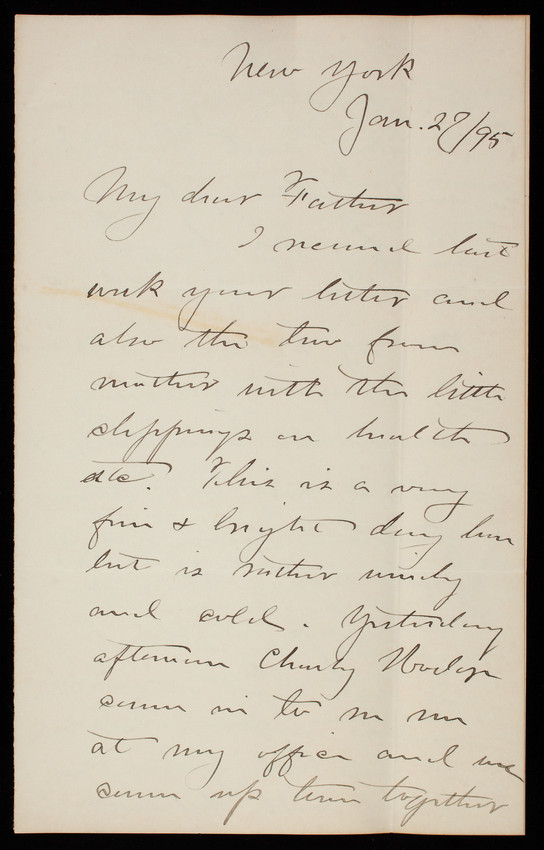 New York
Jan. 27/95
My dear Father
I received last
week your letter and
also the two from
mother with the little
clippings on health
etc. This is a very
fine & bright day here
but is rather windy
and cold. Yesterday
afternoon Charley
came in to see me
at my office and we
came up town together